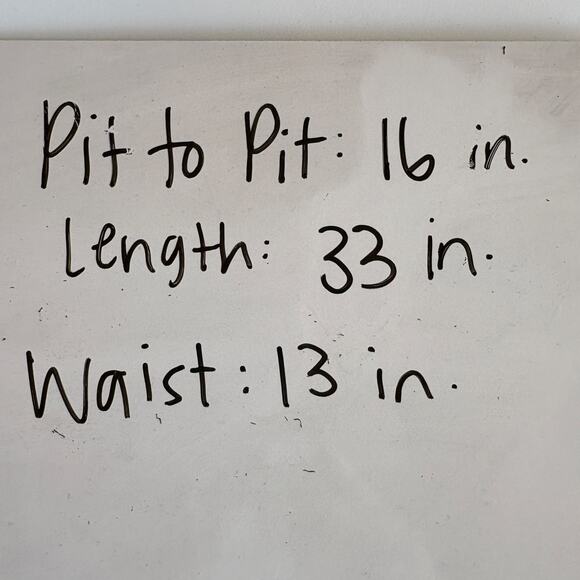 Pit to Pit: 16 in.
Length: 33 in.
Waist: 13 in.